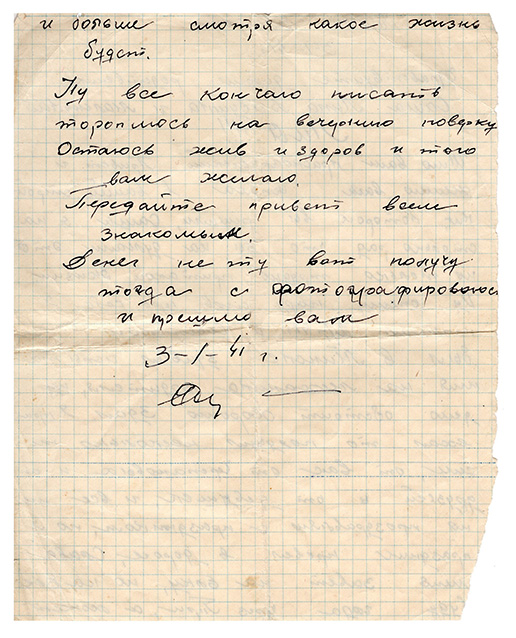 и больше смотря какое жизнь
будет.
Ну все кончаю писать
тороплюсь на вечернию поверку
Остаюсь жив и здоров и того
вам желаю.
Передайте привет всем
знакомым.
Денег нету вот получу
тогда с фотографироваюсь
и пришлю вам
3-I-41 г.